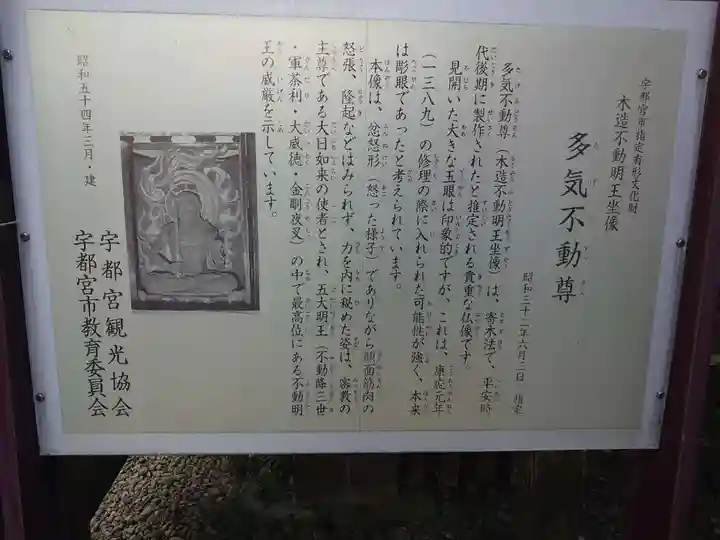 宇都宮市指定有形文化財
木造不動明王坐像
多気不動尊
昭和三十二年六月二日 指定
多気不動尊(木造不動明王坐像)は、寄木法で、平安時
代後期に製作されたと推定される貴重な仏像です。
見開いた大きな玉眼は印象的ですが、これは、康応元年
(一三八九)の修理の際に入れられた可能性が強く、本来
は彫眼であったと考えられています。
本像は、忿怒形(怒った様子)でありながら顔面筋肉の
怒張、隆起などはみられず、力を内に秘めた姿は、密教の
主尊である大日如来の使者とされ、五大明王(不動降三世
・軍荼利・大威徳・金剛夜叉)の中で最高位にある不動明
王の威厳を示しています。
昭和五十四年三月・建
宇都宮観光協会
宇都宮市教育委員会